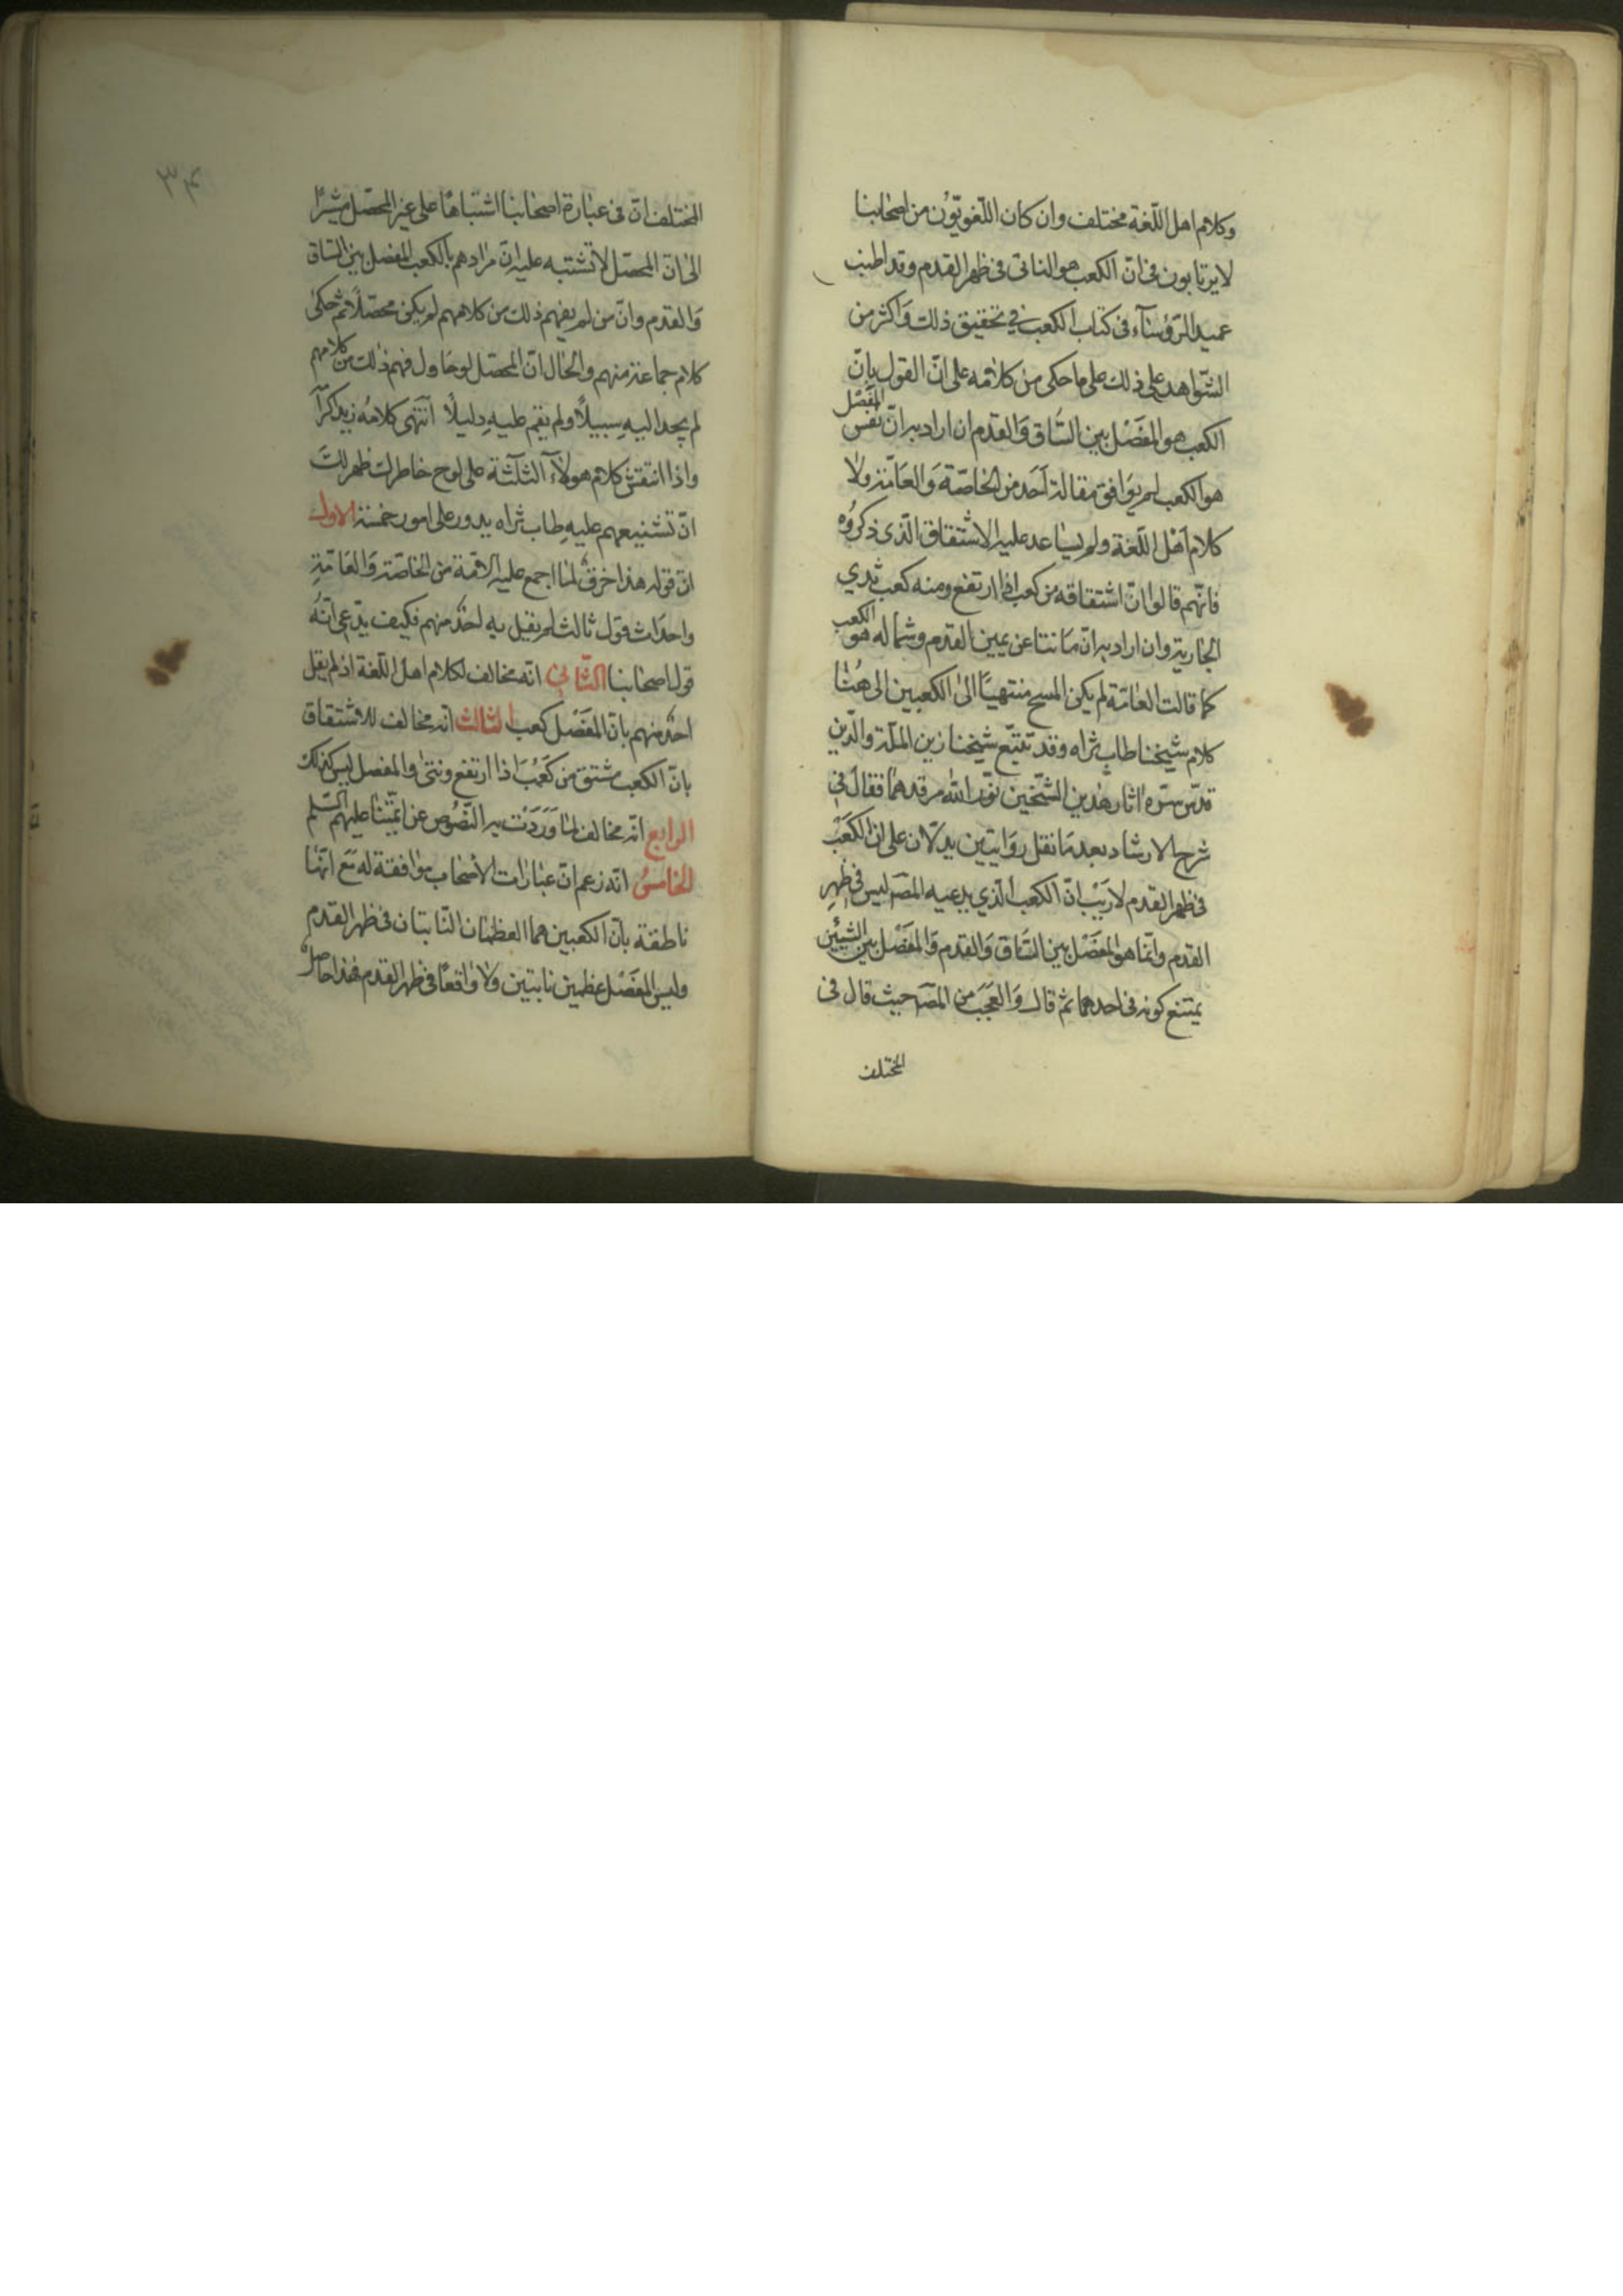 وكلام اهل اللّغة مختلف وان كان اللّغويّون من اصحابنا
لا يرتابون فى انّ الكعب هو الناتى فى ظهر القدم وقد اطنب
عميد الرّؤساء فى كتاب الكعب في تحقيق ذلك وَاكثر من
الشّواهد على ذلك على ما حكى من كلامه على انّ القول بانّ
الكعب هو المَفصَل بين السَّاق وَالقدم ان اراد به انّ نفس المَفصَل
هو الكعب لم يوَافق مقالة اَحَد من الخاصّة وَالعَامّة ولا
كلام اَهْل اللّغة ولم يساعد عليه الاشتقاق الّذى ذكرُوه
فانّهم قالوا انّ اشتقاقه من كعب اذا ارتفع ومنه كعب ثدي
الجارية وان اراد به انّ مَا نتا عن يمين القدم وشماله هو الكعب
كما قالت العامّة لم يكن المسح منتهيًا الى الكعبين الى هُنا
كلام شيخنا طاب ثراه وقد تتبّع شيخنا زين الملّة والدّين
قدّس سرّه اثار هٰذين الشّيخين نوّر الله مرقدهما فقال في
شرح الارشاد بعد مَا نقل روَايتين يدلّان على ان الكَعْبَ
فى ظهر القدم لا رَيْبَ انّ الكعب الّذي يدعيه المصَ ليس فى ظهرِ
القدم وانّما هو المَفصَل بين السَّاق وَالقدم وَالمَفصَل بين الشيئين
يمتنع كونه فى احدهما ثم قال وَالعَجَبَ من المصَ حيث قال فى
المختلف
٣۴
المختلف انّ فى عبارة اصحابنا اشتباهًا على غير المحصّل مشيرًا
الى ان المحصّل لا تشتبه عليه انّ مرادهم بالكعب المفصل بين السّاق
وَالقدم وانّ من لم يفهم ذلك من كلامهم لم يكن محصّلًا ثم حكى
كلام جماعة منهم والحال انّ المحصّل لو حَاول فهم ذلك من كلامهم
لم يجد اليهِ سبيلًا ولم يقم عليهِ دليلًا انتهى كلامُه زيد كرآ
واذا انتقش كلام هولآء الثلثة على لوح خاطرك ظهر لكَ
انّ تشنيعهم عليهِ طاب ثراه يدور على امور خمسة الاول
انّ قوله هذا خرق لما اجمع عليه الامّة من الخاصّة وَالعَامّةِ
واحدَاث قول ثالث لم يقل بهِ احدٌ منهم فكيف يدّعى انّهُ
قول اصحابنا الثّاني انّه مخالف لكلام اهل اللّغة اذ لم يقل
احدٌ منهم بانّ المَفصَل كعب الثالث انه مخالف للاشتقاق
بانّ الكعب مشتق من كَعُبَ اذا ارتفع ونتى والمفصل ليس كذلك
الرابع انّه مخالف لما وَرَدَت به النّصُوص عن ائمّتنا عليهم السّلم
الخامسُ انّه زعم انّ عبارات الاَصحاب موافقة له مَعَ انّها
ناطقة بانّ الكعبين هما العظمان النّابتان فى ظهر القدم
وليس المَفصَل عظمين نابتين ولا واقعًا فى ظهر القدم فهذا حَاصلُ